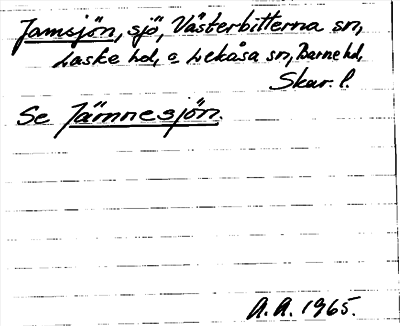 Jamsjön, sjö, Västerbitterna sn,
Laske hd, o Lekåsa sn, Barne hd,
Skar. l.
Se Jämnesjön.
A. A. 1965.